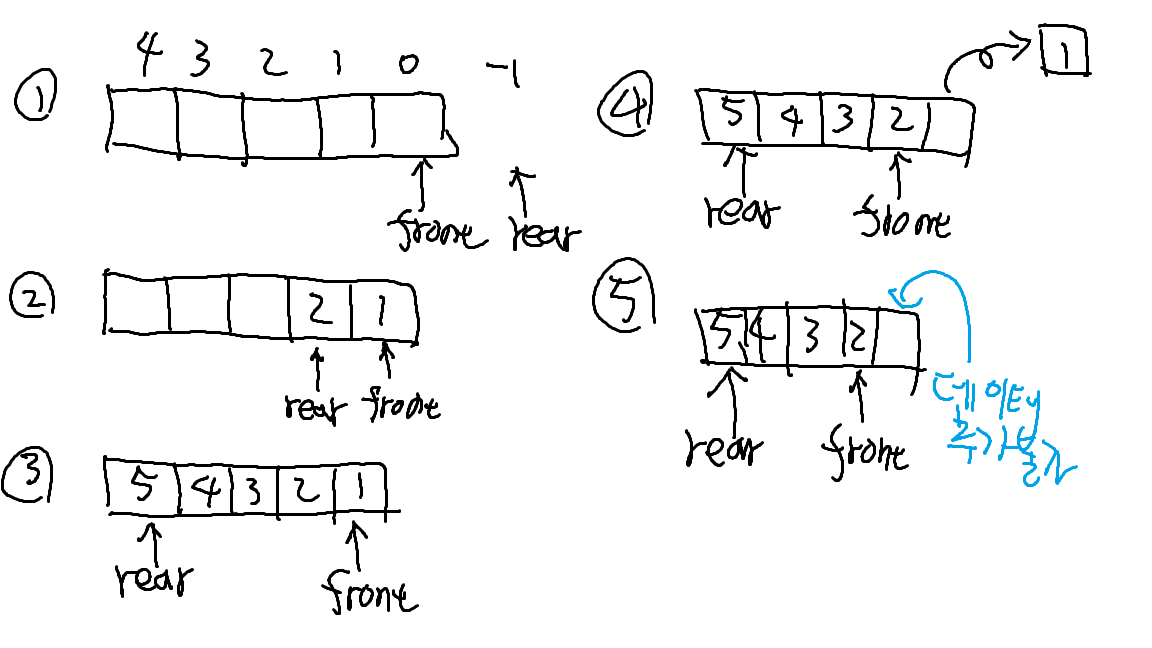 4 3 2 1 0 -1
①
front rear
②
2 1
rear front
③
5 4 3 2 1
rear front
④
1
5 4 3 2
rear front
⑤
5 4 3 2
rear front
데이터